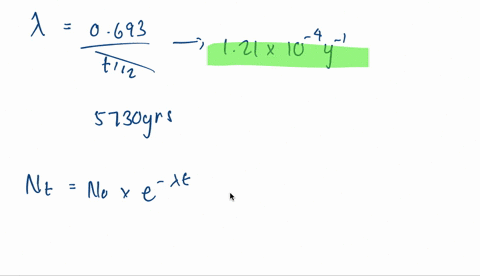 λ = 0.693 / t1/2 → 1.21 × 10⁻⁴ y⁻¹
5730yrs
Nt = No × e^-λt